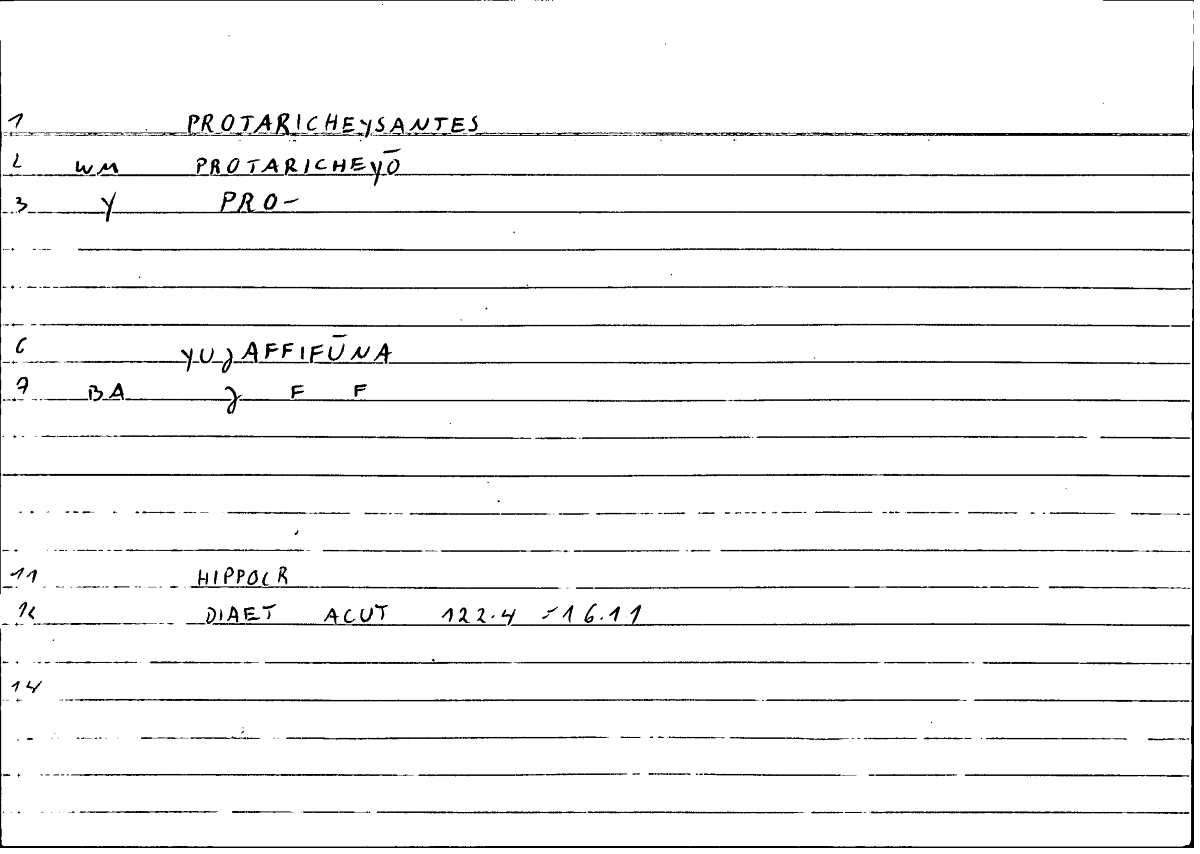 1 PROTARICHEYSANTES
2 WM PROTARICHEYŌ
3 Y PRO-
6 YUȷAFFIFŪNA
7 BA ȷ F F
11 HIPPOCR
12 DIAET ACUT 122.4 =16.11
14